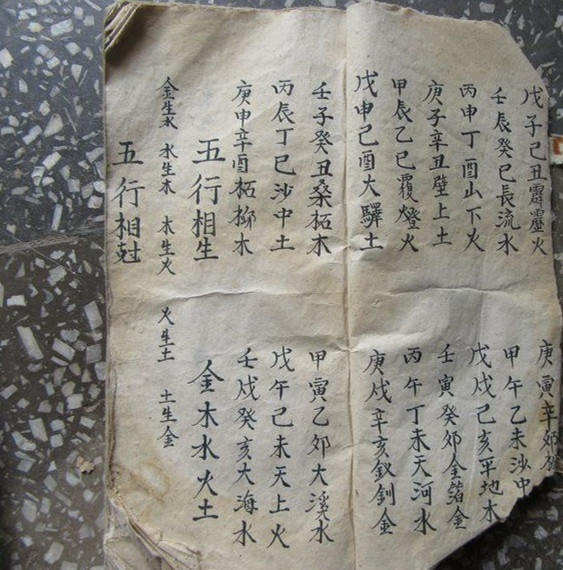 戊子己丑霹靂火 庚寅辛卯
壬辰癸巳長流水 甲午乙未沙中
丙申丁酉山下火 戊戌己亥平地木
庚子辛丑壁上土 壬寅癸卯金箔金
甲辰乙巳覆燈火 丙午丁未天河水
戊申己酉大驛土 庚戌辛亥釵釧金
壬子癸丑桑柘木 甲寅乙卯大溪水
丙辰丁巳沙中土 戊午己未天上火
庚申辛酉柘榴木 壬戌癸亥大海水
五行相生 金木水火土
金生水 水生木 木生火 火生土 土生金
五行相尅